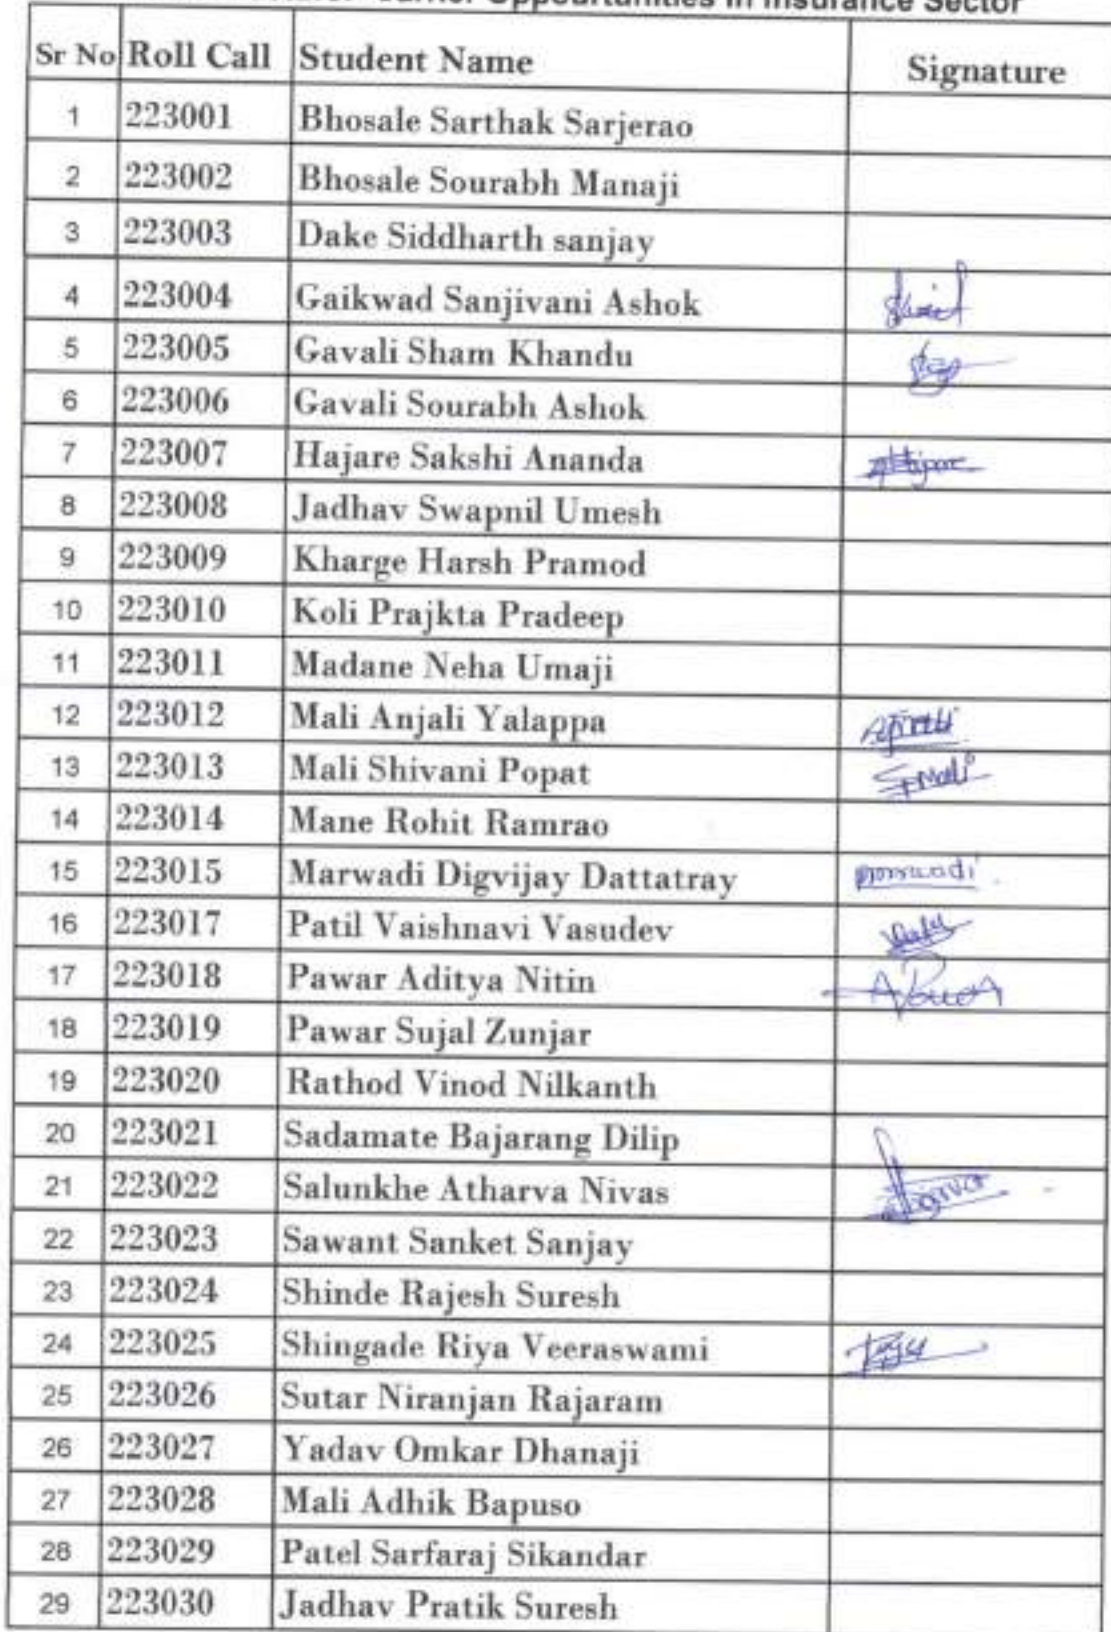 Carrier Oppourtunities in Insurance Sector
Sr No Roll Call Student Name Signature
1 223001 Bhosale Sarthak Sarjerao
2 223002 Bhosale Sourabh Manaji
3 223003 Dake Siddharth sanjay
4 223004 Gaikwad Sanjivani Ashok
5 223005 Gavali Sham Khandu
6 223006 Gavali Sourabh Ashok
7 223007 Hajare Sakshi Ananda
8 223008 Jadhav Swapnil Umesh
9 223009 Kharge Harsh Pramod
10 223010 Koli Prajkta Pradeep
11 223011 Madane Neha Umaji
12 223012 Mali Anjali Yalappa
13 223013 Mali Shivani Popat
14 223014 Mane Rohit Ramrao
15 223015 Marwadi Digvijay Dattatray
16 223017 Patil Vaishnavi Vasudev
17 223018 Pawar Aditya Nitin
18 223019 Pawar Sujal Zunjar
19 223020 Rathod Vinod Nilkanth
20 223021 Sadamate Bajarang Dilip
21 223022 Salunkhe Atharva Nivas
22 223023 Sawant Sanket Sanjay
23 223024 Shinde Rajesh Suresh
24 223025 Shingade Riya Veeraswami
25 223026 Sutar Niranjan Rajaram
26 223027 Yadav Omkar Dhanaji
27 223028 Mali Adhik Bapuso
28 223029 Patel Sarfaraj Sikandar
29 223030 Jadhav Pratik Suresh